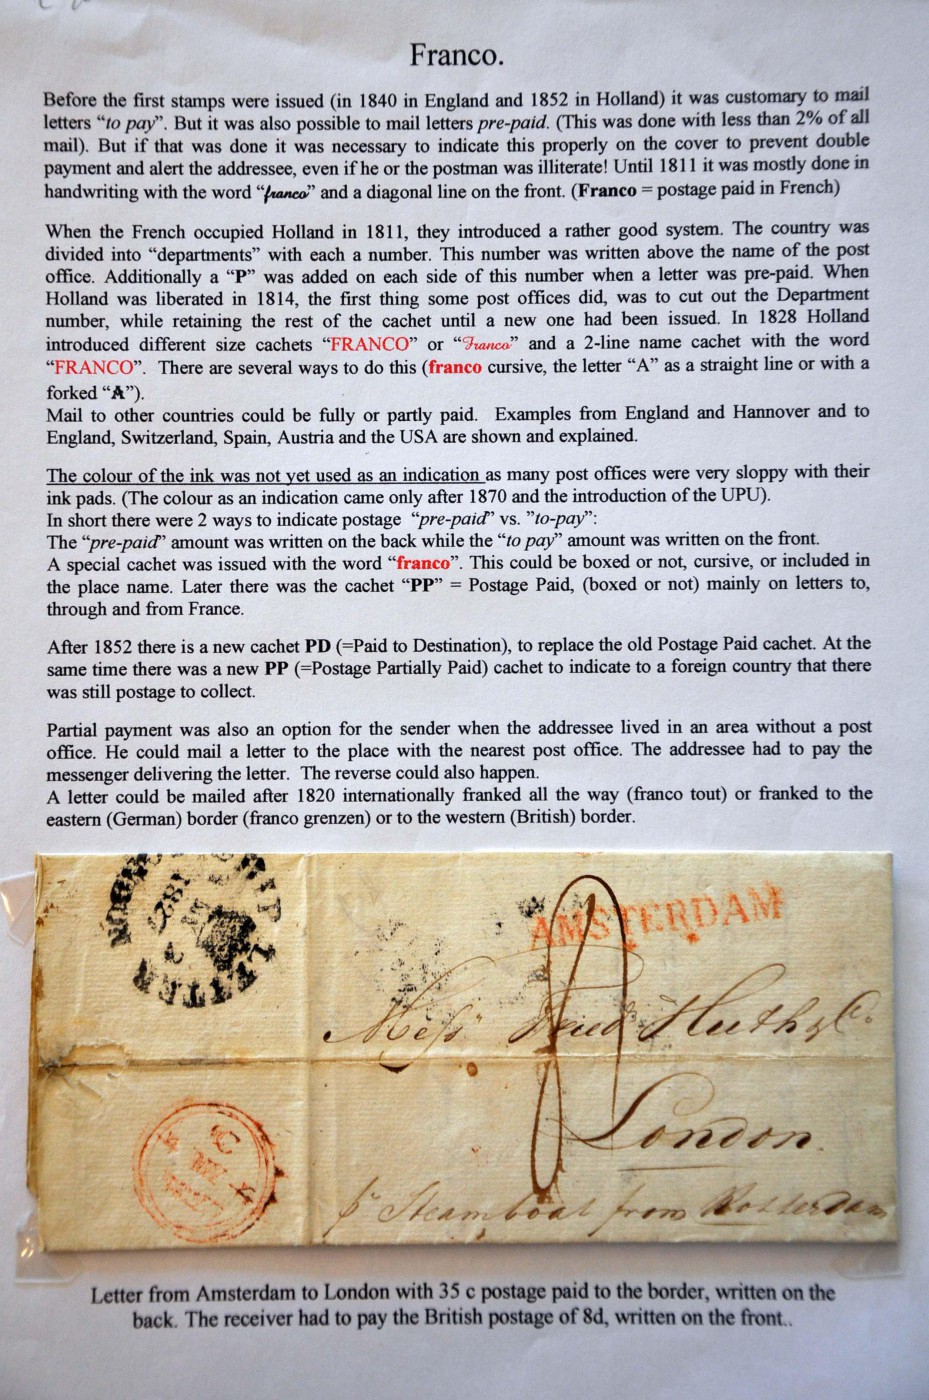 Franco.
Before the first stamps were issued (in 1840 in England and 1852 in Holland) it was customary to mail
letters “to pay”. But it was also possible to mail letters pre-paid. (This was done with less than 2% of all
mail). But if that was done it was necessary to indicate this properly on the cover to prevent double
payment and alert the addressee, even if he or the postman was illiterate! Until 1811 it was mostly done in
handwriting with the word “franco” and a diagonal line on the front. (Franco = postage paid in French)
When the French occupied Holland in 1811, they introduced a rather good system. The country was
divided into “departments” with each a number. This number was written above the name of the post
office. Additionally a “P” was added on each side of this number when a letter was pre-paid. When
Holland was liberated in 1814, the first thing some post offices did, was to cut out the Department
number, while retaining the rest of the cachet until a new one had been issued. In 1828 Holland
introduced different size cachets “FRANCO” or “Franco” and a 2-line name cachet with the word
“FRANCO”. There are several ways to do this (franco cursive, the letter “A” as a straight line or with a
forked “A”).
Mail to other countries could be fully or partly paid. Examples from England and Hannover and to
England, Switzerland, Spain, Austria and the USA are shown and explained.
The colour of the ink was not yet used as an indication as many post offices were very sloppy with their
ink pads. (The colour as an indication came only after 1870 and the introduction of the UPU).
In short there were 2 ways to indicate postage “pre-paid” vs. ”to-pay”:
The “pre-paid” amount was written on the back while the “to pay” amount was written on the front.
A special cachet was issued with the word “franco”. This could be boxed or not, cursive, or included in
the place name. Later there was the cachet “PP” = Postage Paid, (boxed or not) mainly on letters to,
through and from France.
After 1852 there is a new cachet PD (=Paid to Destination), to replace the old Postage Paid cachet. At the
same time there was a new PP (=Postage Partially Paid) cachet to indicate to a foreign country that there
was still postage to collect.
Partial payment was also an option for the sender when the addressee lived in an area without a post
office. He could mail a letter to the place with the nearest post office. The addressee had to pay the
messenger delivering the letter. The reverse could also happen.
A letter could be mailed after 1820 internationally franked all the way (franco tout) or franked to the
eastern (German) border (franco grenzen) or to the western (British) border.
AMSTERDAM
Huth & Co.
London
C
pr Steamboat from Rotterdam
Letter from Amsterdam to London with 35 c postage paid to the border, written on the
back. The receiver had to pay the British postage of 8d, written on the front..